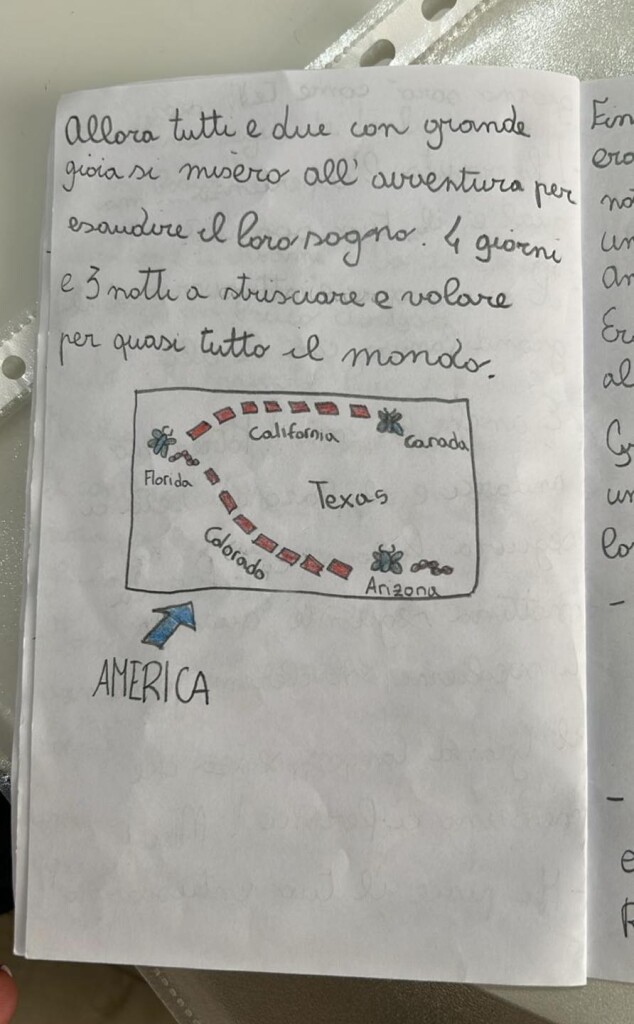 Allora tutti e due con grande
gioia si misero all'avventura per
esaudire il loro sogno. 4 giorni
e 3 notti a strisciare e volare
per quasi tutto il mondo.
California
Canada
Florida
Texas
Colorado
Arizona
AMERICA
Ein
ero
no
un
an
Er
al
un
lo
-
-
e